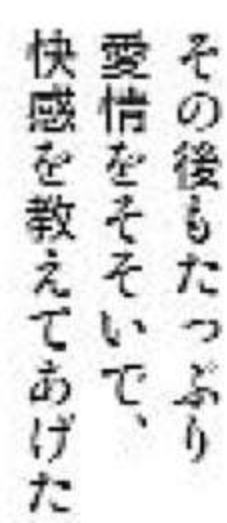 その後もたっぷり
愛情をそそいで、
快感を教えてあげた